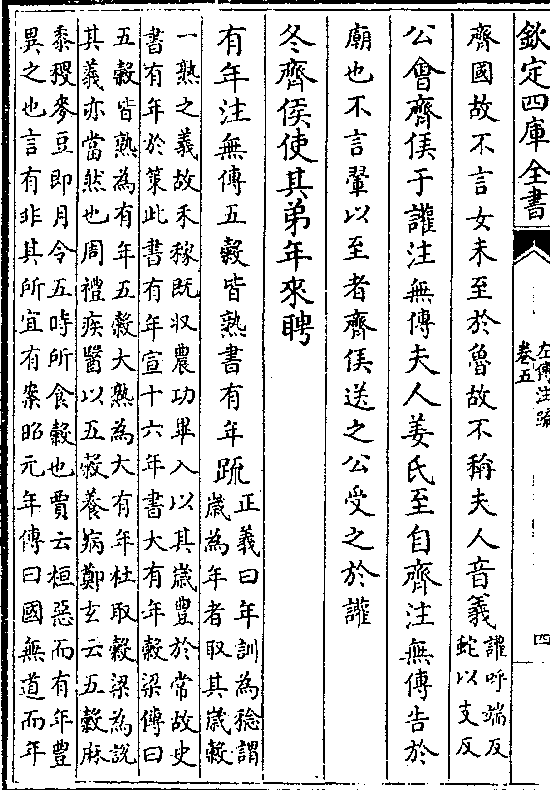 欽定四庫全書
左傳注疏
卷五
四
齊國故不言女未至於魯故不稱夫人音義讙呼端反
蛇以支反
公會齊侯于讙注無傳夫人姜氏至自齊注無傳告於
廟也不言翬以至者齊侯送之公受之於讙
冬齊侯使其弟年來聘
有年注無傳五穀皆熟書有年疏正義曰年訓為稔謂
歲為年者取其歲穀
一熟之義故禾稼既收農功畢入以其歲豐於常故史
書有年於策此書有年宣十六年書大有年穀梁傳曰
五穀皆熟為有年五穀大熟為大有年杜取穀梁為說
其義亦當然也周禮疾醫以五穀養病鄭玄云五穀麻
黍稷麥豆即月令五時所食穀也賈云桓惡而有年豐
異之也言有非其所宜有案昭元年傳曰國無道而年